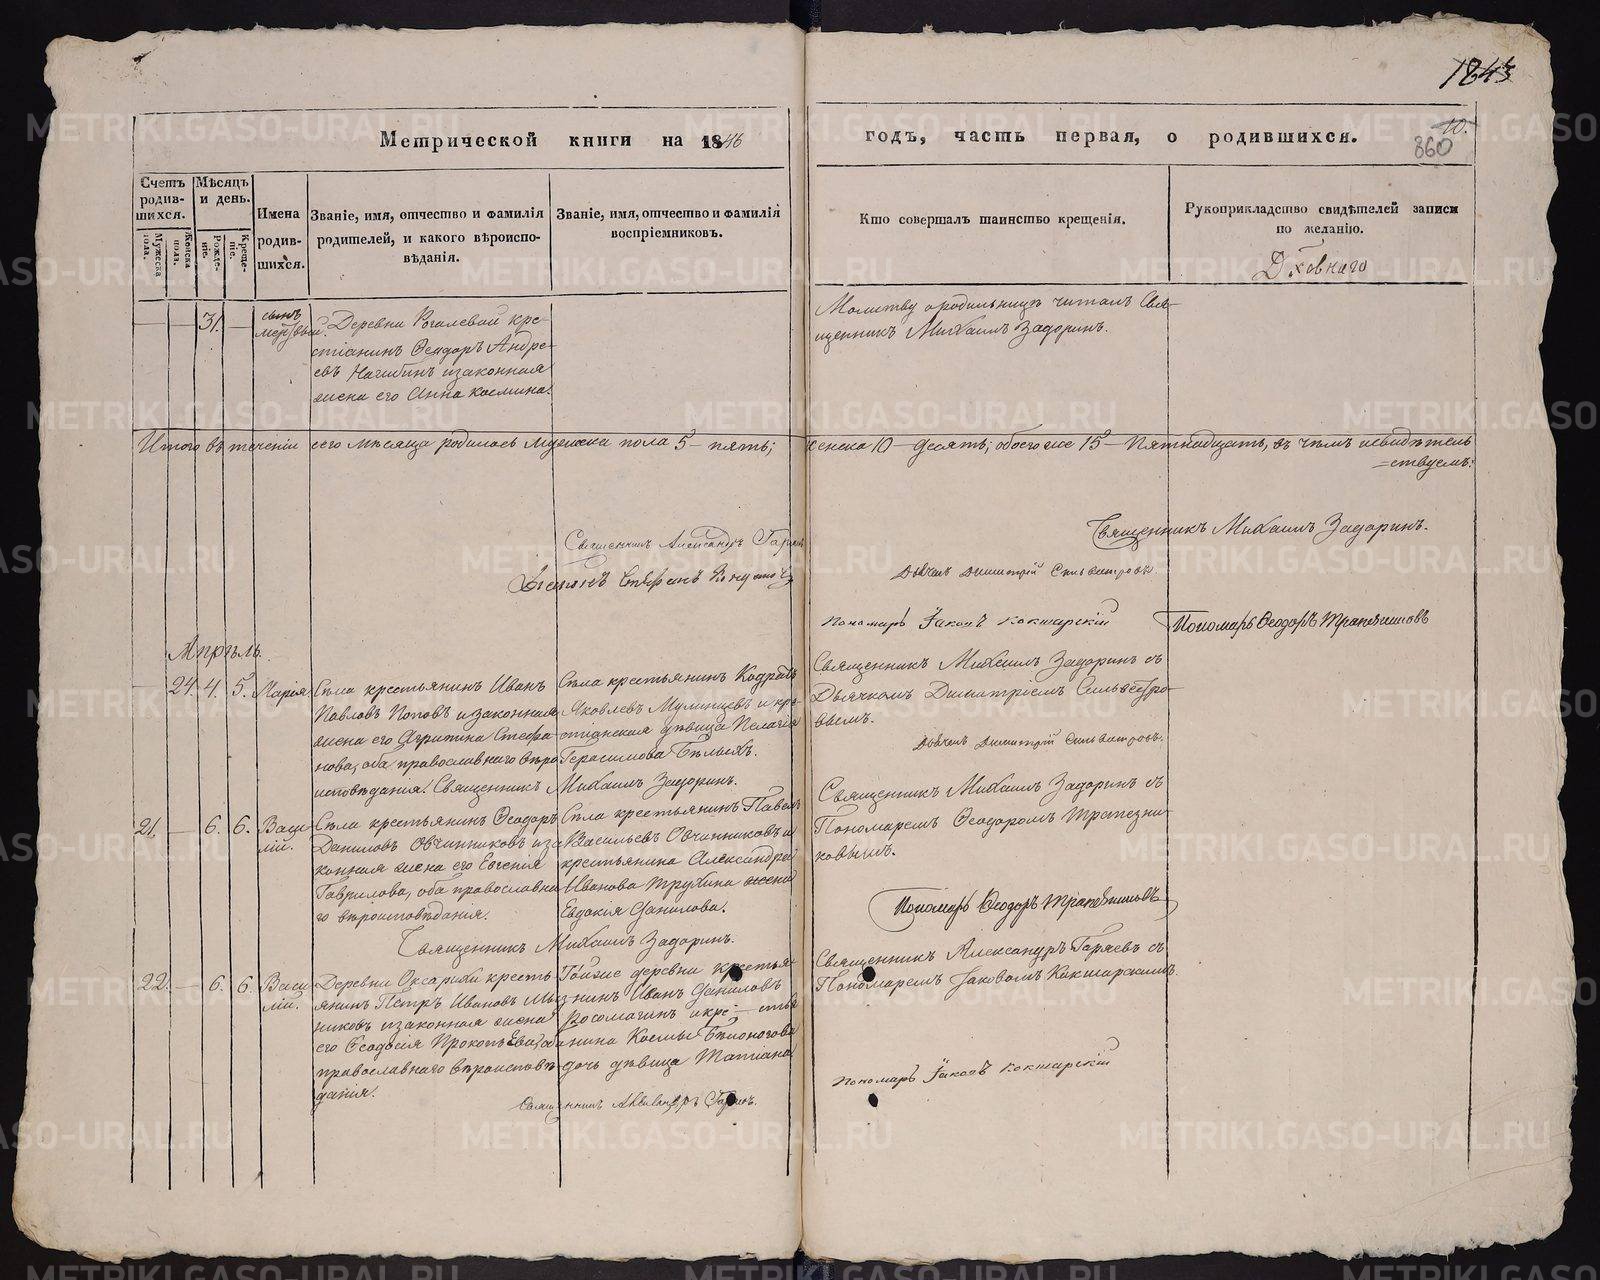 1843
Метрической книги на 1846
годъ, часть первая, о родившихся.
10.
860
Счетъ родив-шихся.
Мѣсяцъ и день.
Мужеска пола.
Женска пола.
Рожде-ніе.
Креще-ніе.
Имена родив-шихся.
Званіе, имя, отчество и фамилія
родителей, и какого вѣроиспо-
вѣданія.
Званіе, имя, отчество и фамилія
воспріемниковъ.
Кто совершалъ таинство крещенія.
Рукоприкладство свидѣтелей записи
по желанію.
31.
сынъ
Деревни Рогалевой кре-
стіанинъ Ѳеодоръ Андре-
евъ Нагибинъ изаконная
жена его Анна Космина.
Молитву о родильницѣ читалъ Свя-
щенникъ Михаилъ Задоринъ.
Итого въ теченіи сего мѣсяца родилось мужеска пола 5 – пять; женска 10 – десять; обоего же 15 – Пятнадцать, въ чемъ исвидѣтель
=ствуемъ:
Священникъ Александръ
Священникъ Михаилъ Задоринъ.
Дьячекъ Димитрій Сильвестровъ.
Пономарь Іаковъ Кокшарскій
Пономарь Ѳеодоръ Трапезниковъ
Апрѣль.
24. 4. 5. Марія
Села крестьянинъ Иванъ
Павловъ Поповъ и законная
жена его Агрипина Стефа-
нова, оба православнаго вѣро
исповѣданія. Священникъ Михаилъ Задоринъ.
Села крестьянинъ
Яковлевъ и кре-
стіанская дѣвица Пелагія
Герасимова Бѣлыхъ.
Священникъ Михаилъ Задоринъ съ
Дьячкомъ Димитріемъ Сильвестро-
вымъ.
Дьячекъ Димитрій Сильвестровъ.
21. – 6. 6. Васи-
лій.
Села крестьянинъ Ѳеодоръ
Даниловъ Овчинниковъ иза
конная жена его Евгенія
Гаврилова, оба православна
го вѣроисповѣданія.
Села крестьянинъ Павелъ
Васильевъ Овчинниковъ и
крестьянина Александра
Иванова Трухина жена
Евдокія Данилова.
Священникъ Михаилъ Задоринъ.
Священникъ Михаилъ Задоринъ съ
Пономаремъ Ѳеодоромъ Трапезни-
ковымъ.
Пономарь Ѳеодоръ Трапезниковъ
22. – 6. 6. Васи-
лій.
Деревни крестья
янинъ Петръ Ивановъ
никовъ изаконная жена
его Ѳеодосія
православнаго вѣроисповѣ
данія.
Тойже деревни крестья
нинъ Иванъ Даниловъ
Росомагинъ икре – стья
нина Космы Бѣлоногова
дочь дѣвица Татіана
Священникъ Александръ
Священникъ Александръ Гаряевъ съ
Пономаремъ Іаковомъ Кокшарскимъ.
Пономарь Іаковъ Кокшарскій
METRIKI.GASO-URAL.RU